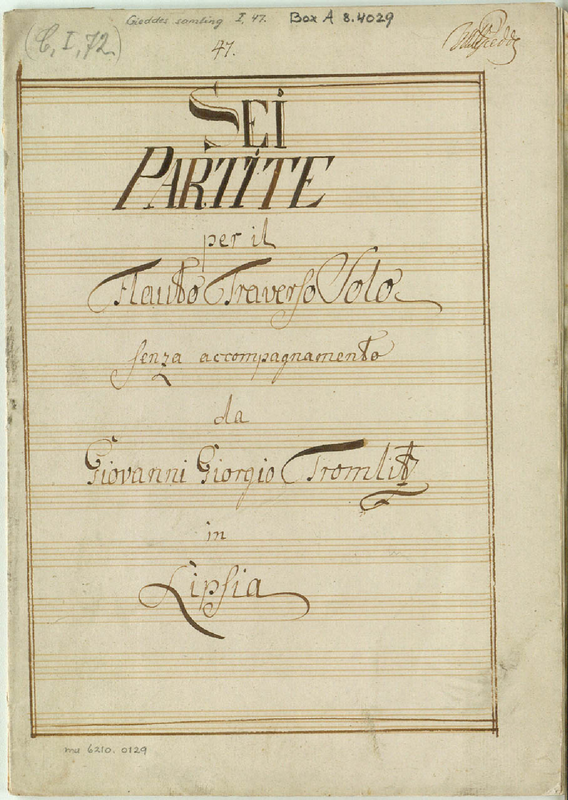 Gieddes samling I, 47. Box A 8.4029
(C, I, 72.)
47.
SEI
PARTITE
per il
Flauto Traverso Solo
senza accompagnamento
da
Giovanni Giorgio Tromlitz
in
Lipsia
mu 6210.0129